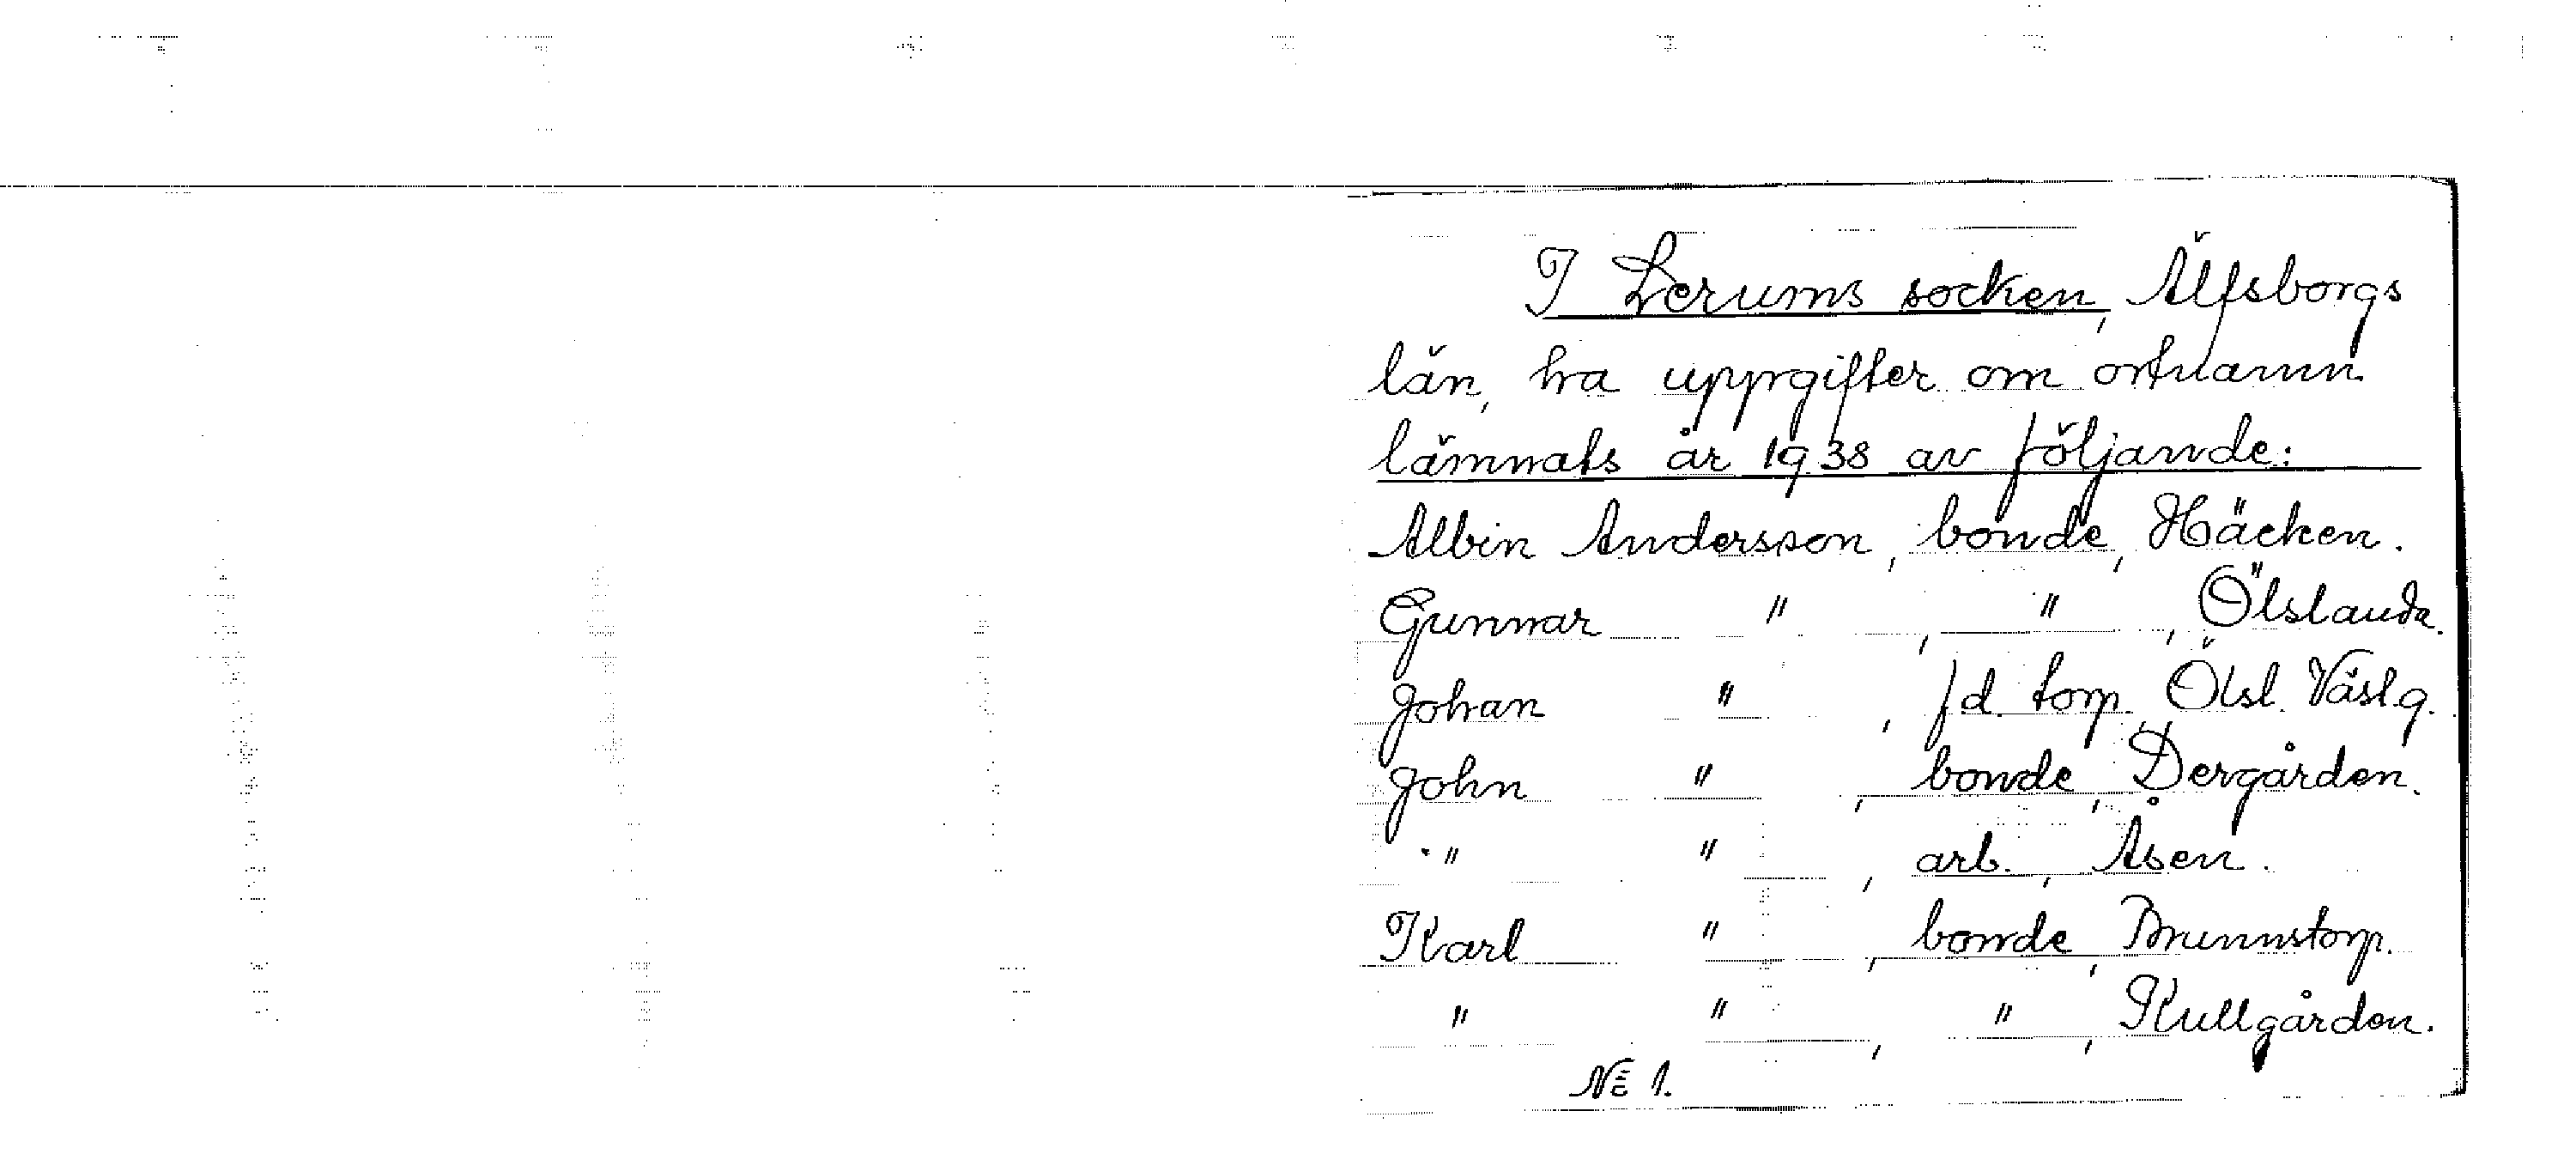 I Lerums socken, Älfsborgs
län, ha uppgifter om ortnamn
lämnats år 1938 av följande:
Albin Andersson, bonde, Häcken.
Gunnar " , " , Ölslanda.
Johan " , f.d. torp. Ölsl. Västg.
John " , bonde, Dergården.
" " , arb., Åsen.
Karl " , bonde, Brunnstorp.
" " , " , Kullgården.
№ 1.